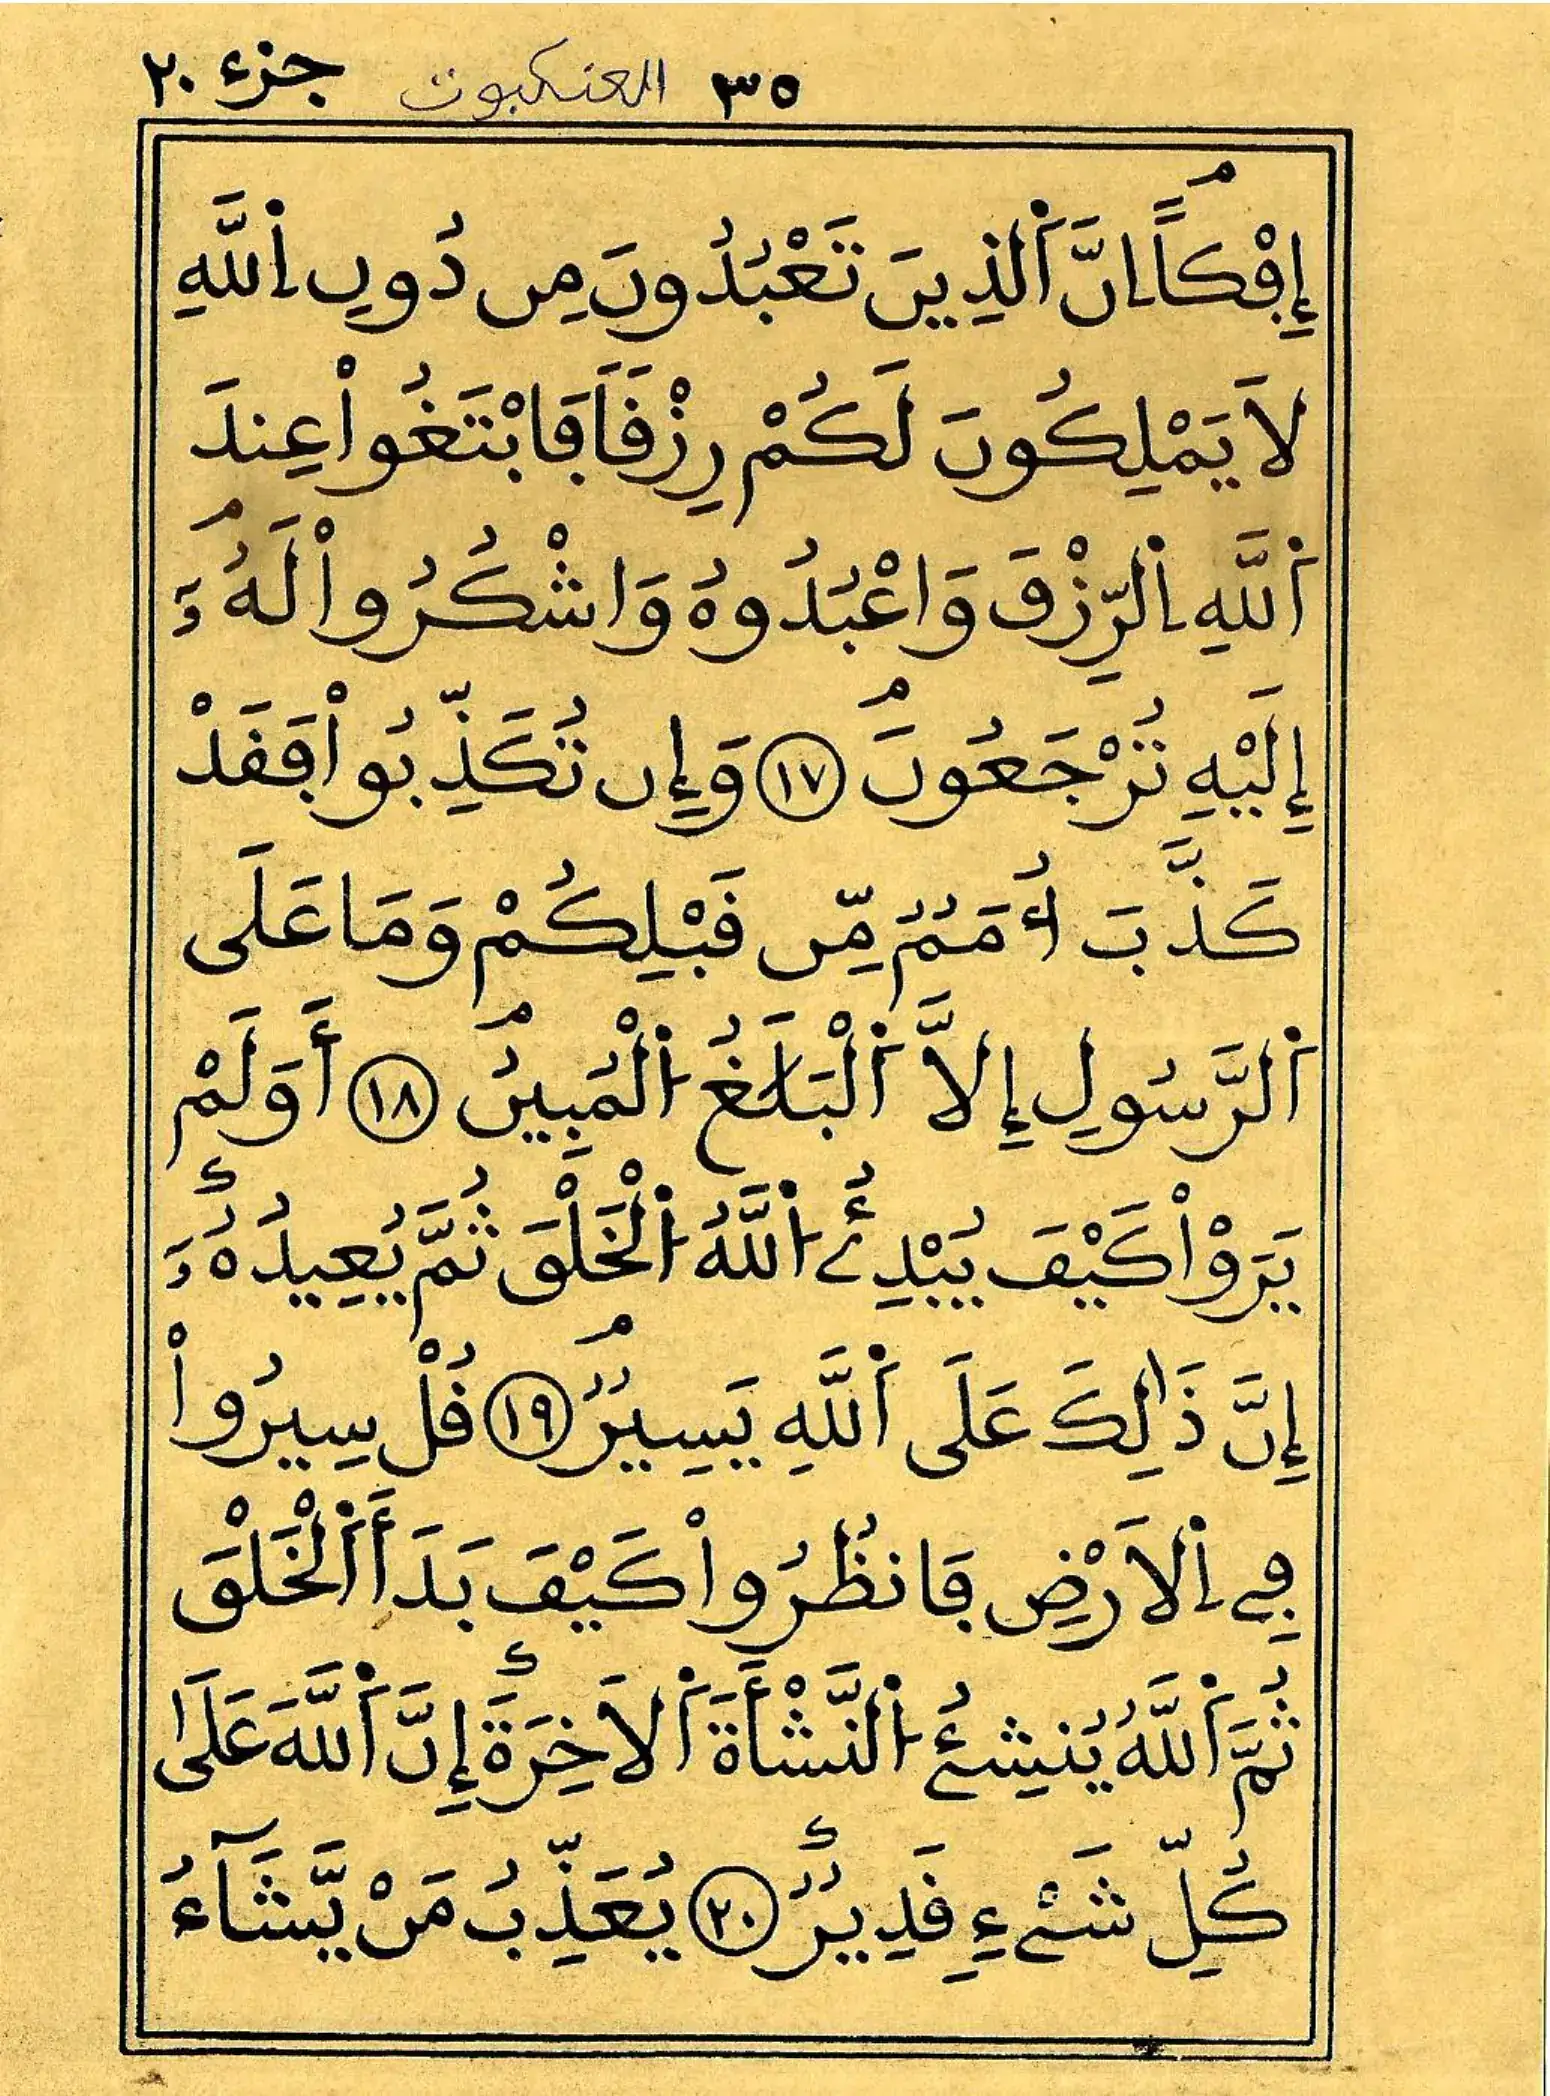 ٣٥ العنكبوت جزء ٢٠
إِفْكاًۖ اِنَّ اَ۬لذِينَ تَعْبُدُونَ مِن دُونِ اِ۬للَّهِ
لَا يَمْلِكُونَ لَكُمْ رِزْقاَ فَابْتَغُواْ عِندَ
اَ۬للَّهِ اِ۬لرِّزْقَ وَاعْبُدُوهُ وَاشْكُرُواْ لَهُۥۖ وَ
إِلَيْهِ تُرْجَعُونَۖ ١٧ وَإِن تُكَذِّبُواْ فَقَدْ
كَذَّبَ أُمَمُۥ مِّن قَبْلِكُمْ وَمَا عَلَى
اَ۬لرَّسُولِ إِلَّا اَ۬لْبَلَٰغُ اُ۬لْمُبِينُۖ ١٨ أَوَلَمْ
يَرَوْاْ كَيْفَ يُبْدِئُ اُ۬للَّهُ اُ۬لْخَلْقَ ثُمَّ يُعِيدُهُۥٓ وَ
إِنَّ ذَٰلِكَ عَلَى اَ۬للَّهِ يَسِيرٌۖ ١٩ قُلْ سِيرُواْ
فِے اِ۬لَارْضِ فَانظُرُواْ كَيْفَ بَدَأَ اَ۬لْخَلْقَ
ثُمَّ اَ۬للَّهُ يُنشِئُ اُ۬لنَّشْأَةَ اَ۬لَاخِرَةَ إِنَّ اَ۬للَّهَ عَلَىٰ
كُلِّ شَےْءٖ قَدِيرٌ ٢٠ يُعَذِّبُ مَنْ يَّشَآءُ